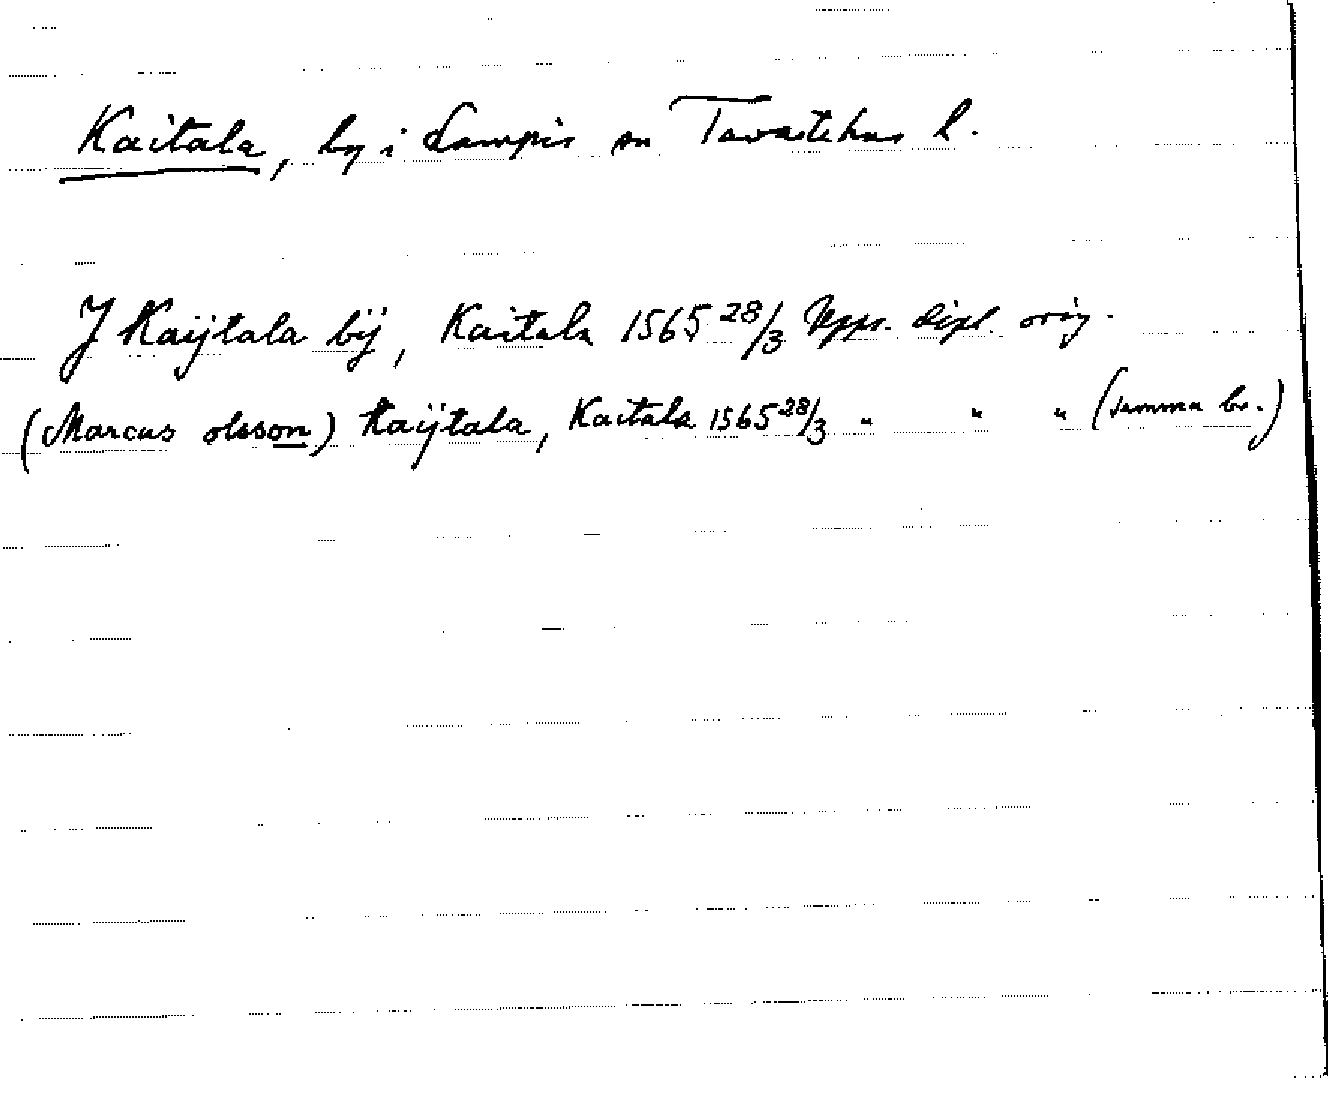 Kaitala, by i Lampis sn Tavastehus l.
J Kaijtala bij, Kaitala 1565 28/3 Upps. dipl. orig.
(Marcus olsson) Kaijtala, Kaitala 1565 28/3 " " " (samma br.)